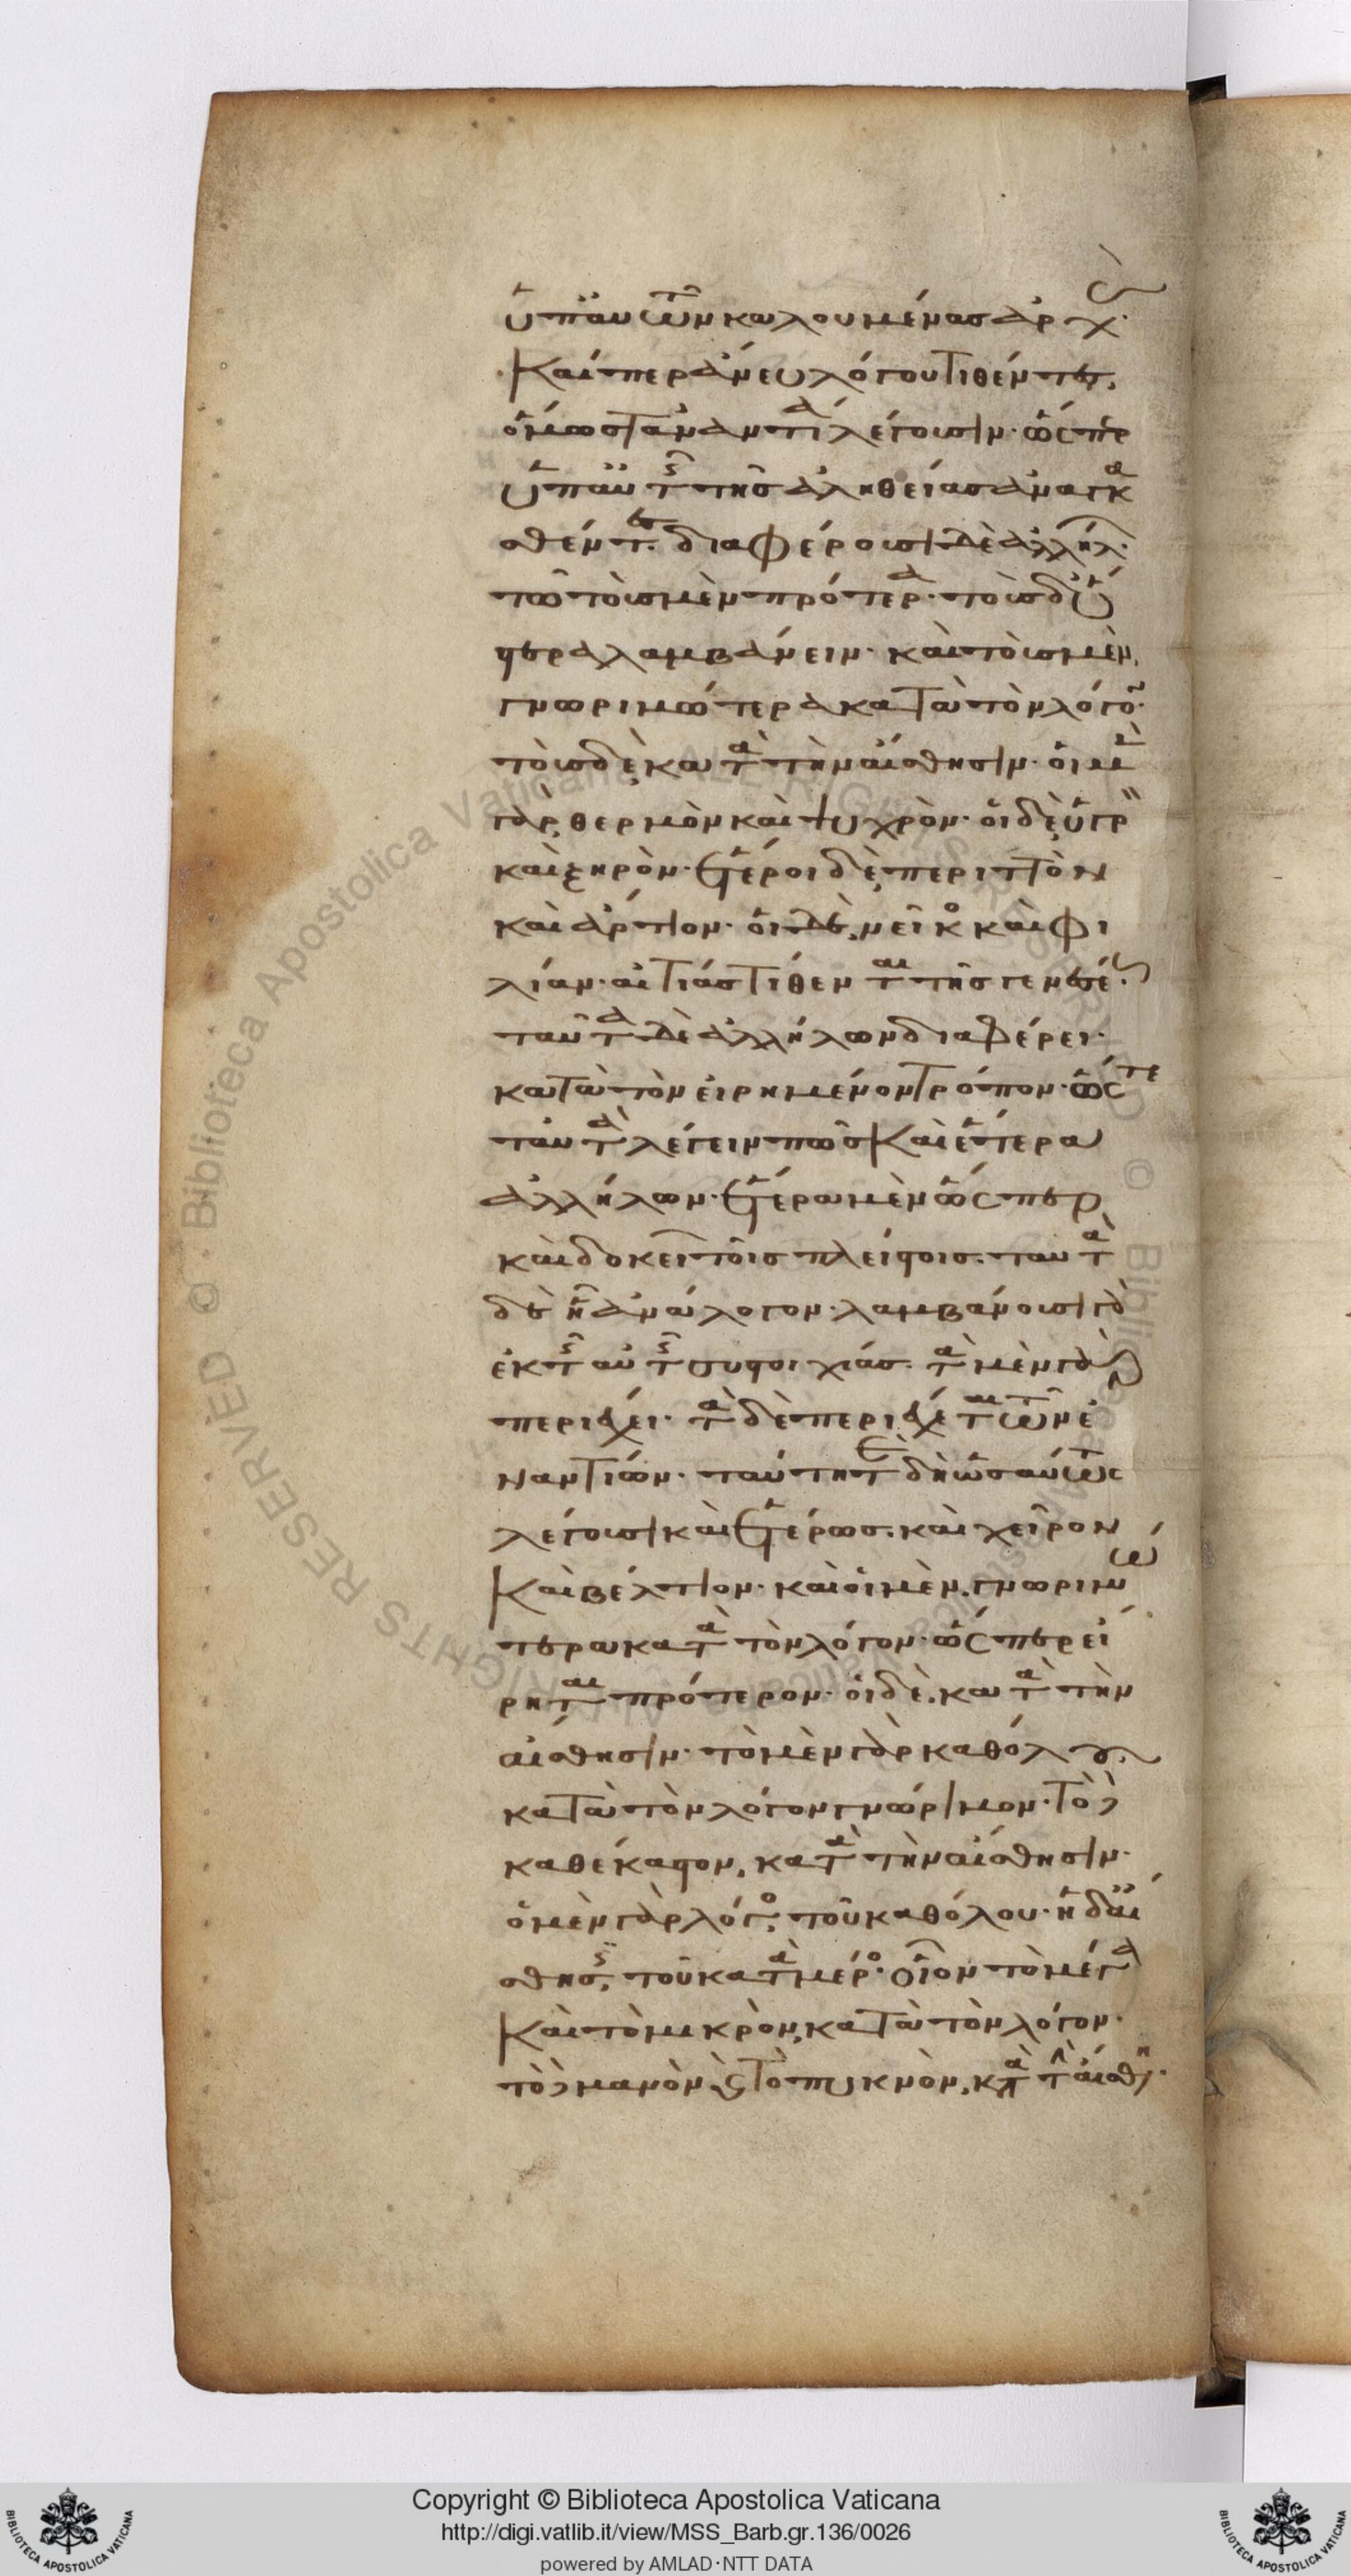 ὑπαυτῶν καλουμένας ἀρχ
Καίπερ ἄνευ λόγου τιθέντες
ὅμως τἀναντία λέγουσιν· ὥσπερ
ὑπαὐτῆς τῆς ἀληθείας ἀναγκα
σθέντες. διαφέρουσι δὲ ἀλλήλ
τῶ τοὺς μὲν πρότερα· τοὺς δ' ὕ
στερα λαμβάνειν· καὶ τοὺς μὲν
γνωριμώτερα κατὰ τὸν λόγον·
τοὺς δὲ κατὰ τὴν αἴσθησιν· οἱ μὲν
γὰρ θερμὸν καὶ ψυχρὸν· οἱ δὲ ὑγρ
καὶ ξηρὸν· ἕτεροι δὲ περιττὸν
καὶ ἄρτιον· οἱ δὲ νεῖκος καὶ φι
λίαν· αἰτίας τίθενται τῆς γενέσε
ταῦτα δὲ ἀλλήλων διαφέρει·
κατὰ τὸν εἰρημένον τρόπον· ὥστε
ταὐτὰ λέγειν πως Καὶ ἕτερα
ἀλλήλων· ἕτερα μὲν ὥσπερ
καὶ δοκεῖ τοῖς πλείστοις. ταυτὰ
δὲ ἧ ἀνάλογον· λαμβάνουσι γὰ
ἐκ τῆς αὐτῆς συστοιχίας. τὰ μὲν γὰρ
περιέχει· τὰ δὲ περιέχεται τῶν ἐ
ναντίων· ταύτη τε δὴ ὡσαύτως
λέγουσι καὶ ἑτέρως. καὶ χεῖρον
Καὶ βέλτιον· καὶ οἱ μὲν γνωριμώ
τερα κατὰ τὸν λόγον· ὥσπερ εἴ
ρηται πρότερον· οἱ δὲ κατὰ τὴν
αἴσθησιν· τὸ μὲν γὰρ καθόλου
κατὰ τὸν λόγον γνώριμον· τὸ δὲ
καθέκαστον, κατὰ τὴν αἴσθησιν·
ὁ μὲν γὰρ λόγος τοῦ καθόλου· ἡ δ' αἴ
σθησις τοῦ κατὰ μέρος· οἷον τὸ μέγα
Καὶ τὸ μικρὸν, κατὰ τὸν λόγον·
τὸ δὲ μανὸν καὶ τὸ πυκνὸν, κατὰ τὴν αἴσθη·
Copyright © Biblioteca Apostolica Vaticana
http://digi.vatlib.it/view/MSS_Barb.gr.136/0026
powered by AMLAD·NTT DATA